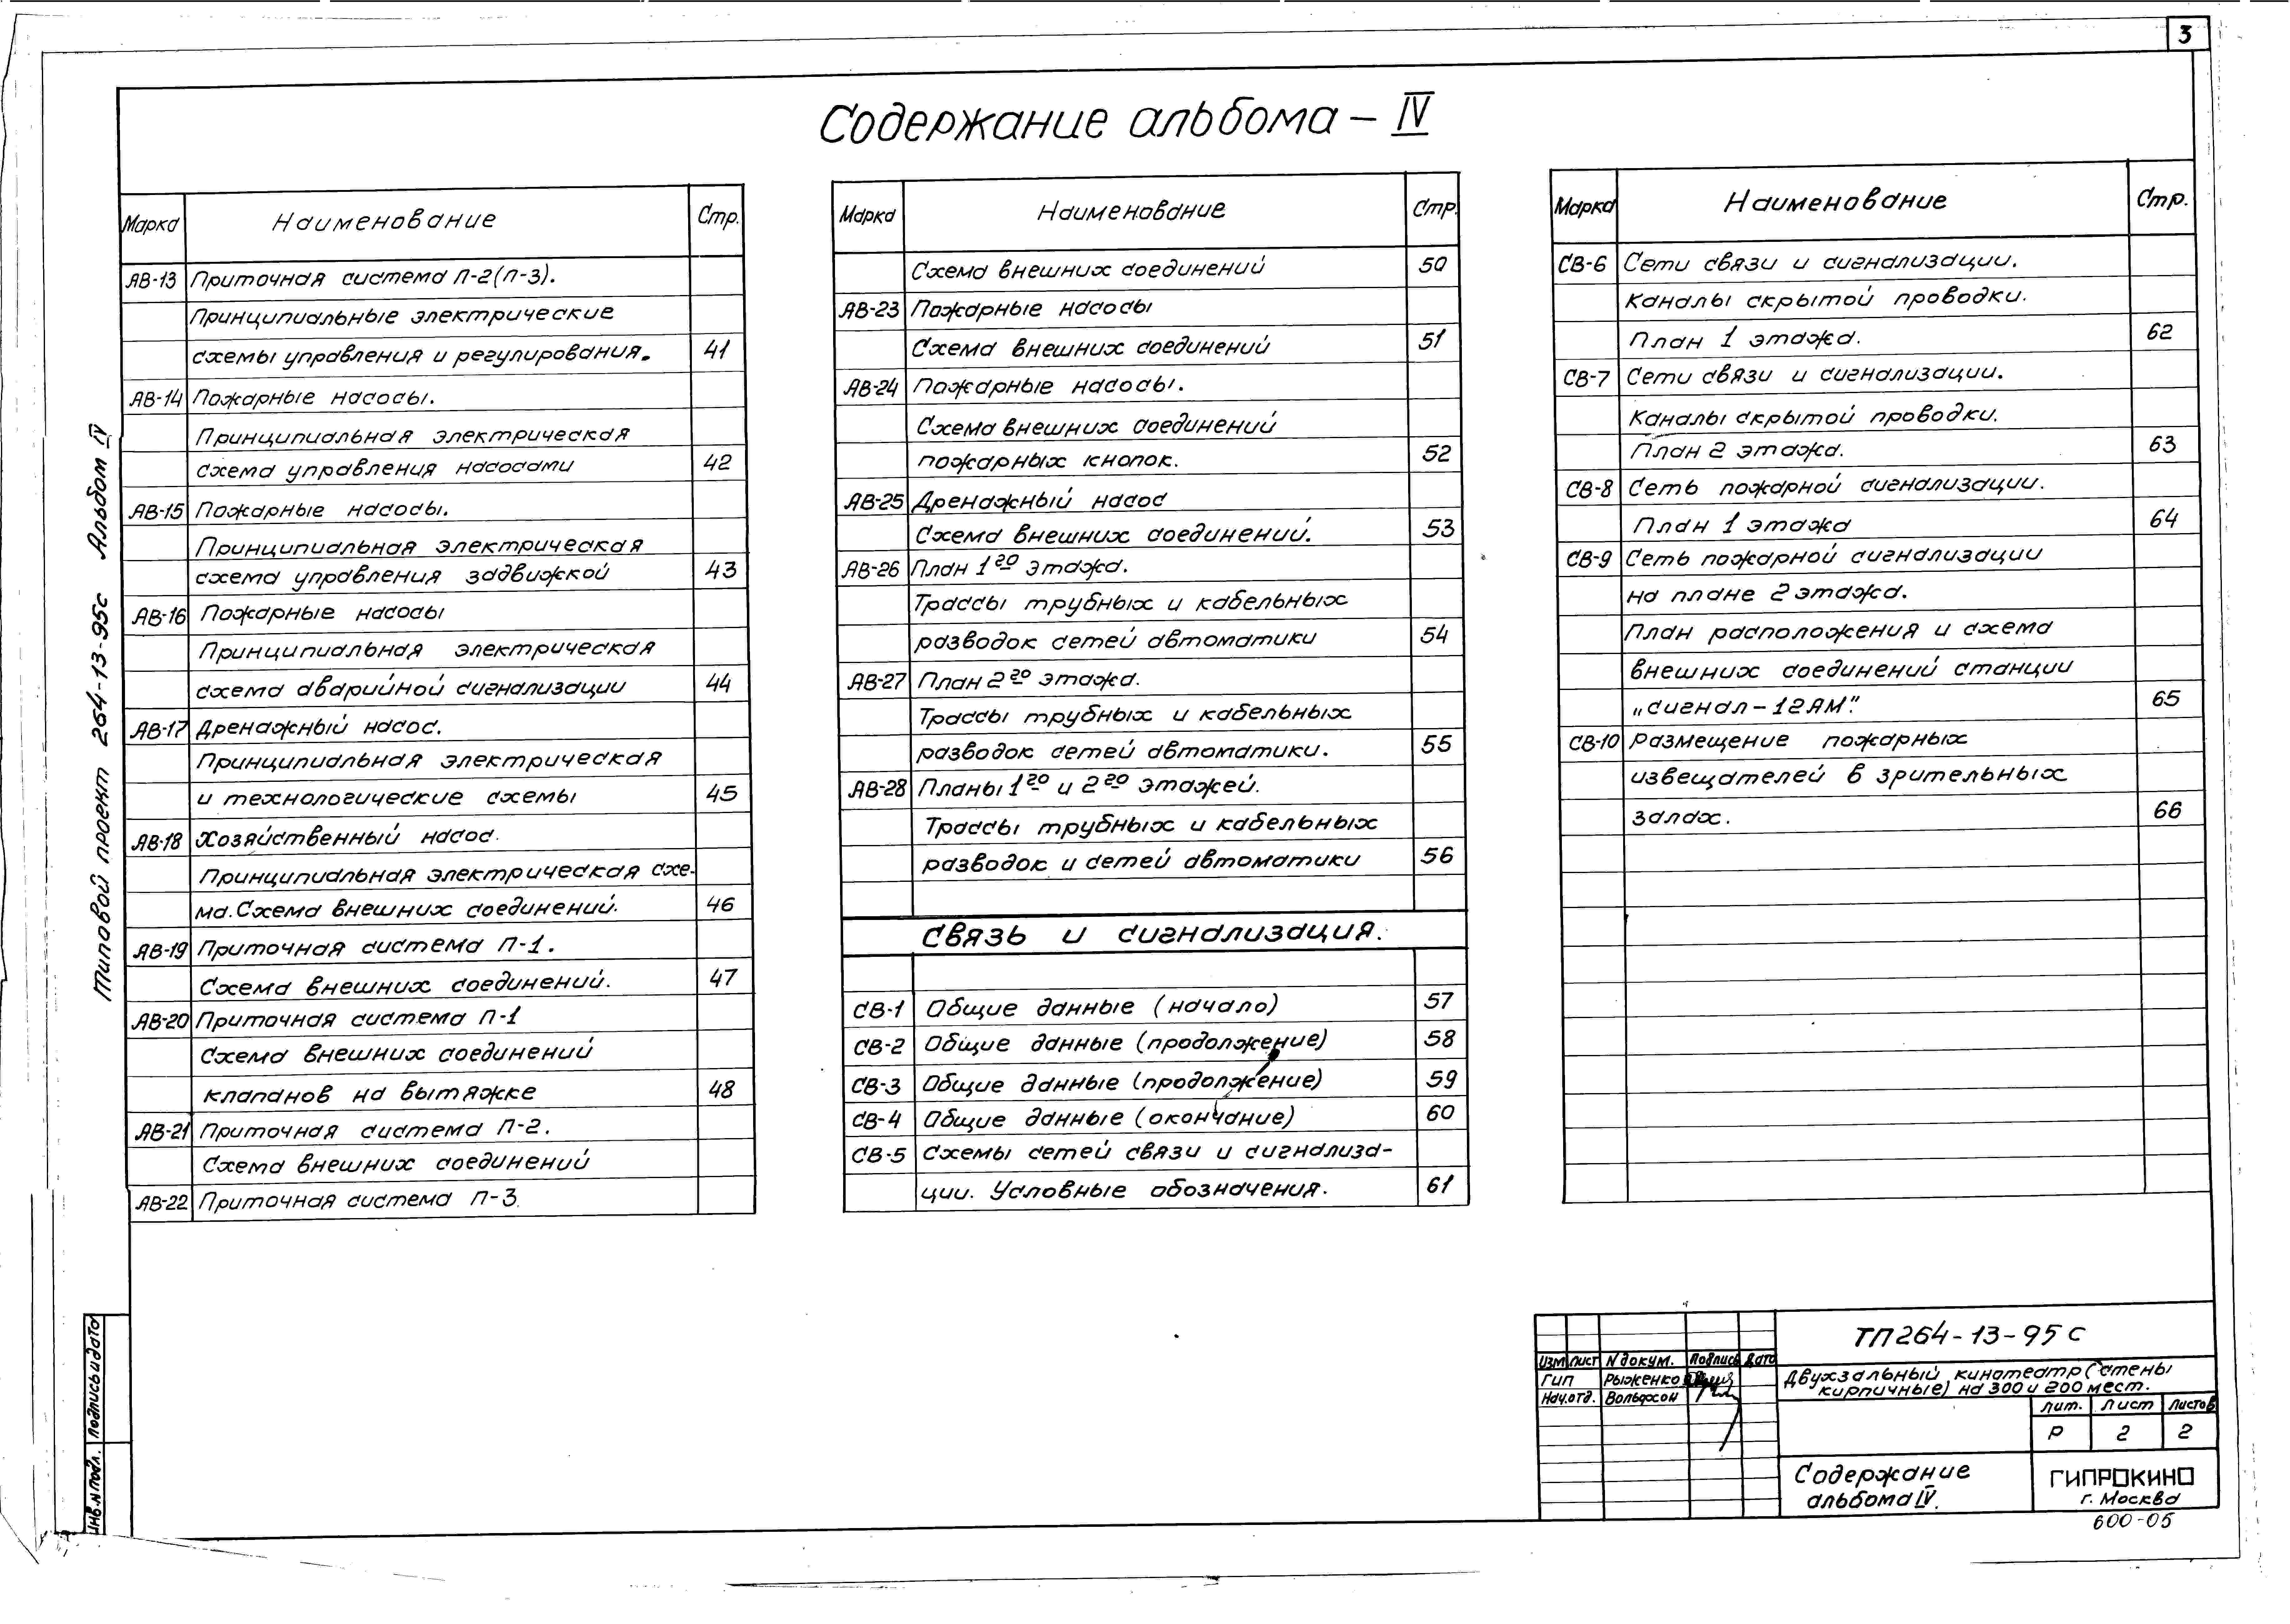 3
Содержание альбома – IV
Марка Наименование Стр.
АВ-13 Приточная система П-2(П-3).
Принципиальные электрические
схемы управления и регулирования. 41
АВ-14 Пожарные насосы.
Принципиальная электрическая
схема управления насосами 42
АВ-15 Пожарные насосы.
Принципиальная электрическая
схема управления задвижкой 43
АВ-16 Пожарные насосы
Принципиальная электрическая
схема аварийной сигнализации 44
АВ-17 Дренажный насос.
Принципиальная электрическая
и технологические схемы 45
АВ-18 Хозяйственный насос.
Принципиальная электрическая схе-
ма. Схема внешних соединений. 46
АВ-19 Приточная система П-1.
Схема внешних соединений. 47
АВ-20 Приточная система П-1
Схема внешних соединений
клапанов на вытяжке 48
АВ-21 Приточная система П-2.
Схема внешних соединений
АВ-22 Приточная система П-3.
Марка Наименование Стр.
Схема внешних соединений 50
АВ-23 Пожарные насосы
Схема внешних соединений 51
АВ-24 Пожарные насосы.
Схема внешних соединений
пожарных кнопок. 52
АВ-25 Дренажный насос
Схема внешних соединений. 53
АВ-26 План 1го этажа.
Трассы трубных и кабельных
разводок сетей автоматики 54
АВ-27 План 2го этажа.
Трассы трубных и кабельных
разводок сетей автоматики. 55
АВ-28 Планы 1го и 2го этажей.
Трассы трубных и кабельных
разводок и сетей автоматики 56
Связь и сигнализация.
СВ-1 Общие данные (начало) 57
СВ-2 Общие данные (продолжение) 58
СВ-3 Общие данные (продолжение) 59
СВ-4 Общие данные (окончание) 60
СВ-5 Схемы сетей связи и сигнализа-
ции. Условные обозначения. 61
Марка Наименование Стр.
СВ-6 Сети связи и сигнализации.
Каналы скрытой проводки.
План 1 этажа. 62
СВ-7 Сети связи и сигнализации.
Каналы скрытой проводки.
План 2 этажа. 63
СВ-8 Сеть пожарной сигнализации.
План 1 этажа 64
СВ-9 Сеть пожарной сигнализации
на плане 2 этажа.
План расположения и схема
внешних соединений станции
„Сигнал-12АМ". 65
СВ-10 Размещение пожарных
извещателей в зрительных
залах. 66
Типовой проект 264-13-95с Альбом IV
Инв.N подл. Подпись и дата
Изм Лист N докум. Подпись Дата
Гип Рыженко
Нач.отд. Вольфсон
ТП 264-13-95 с
Двухзальный кинотеатр (стены
кирпичные) на 300 и 200 мест.
Лит. Лист Листов
Р 2 2
Содержание
альбома IV.
ГИПРОКИНО
г. Москва
600-05